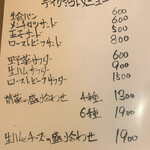 テイクアウトメニュー
生食パン 600
メンチカツサンド 600
玉子サンド 500
ローストビーフサンド 800
野菜サラダ 600
生ハムサラダ 900
ローストビーフサラダ 1500
前菜の盛り合わせ 4種 1300
6種 1900
生ハムとチーズの盛り合わせ 1900